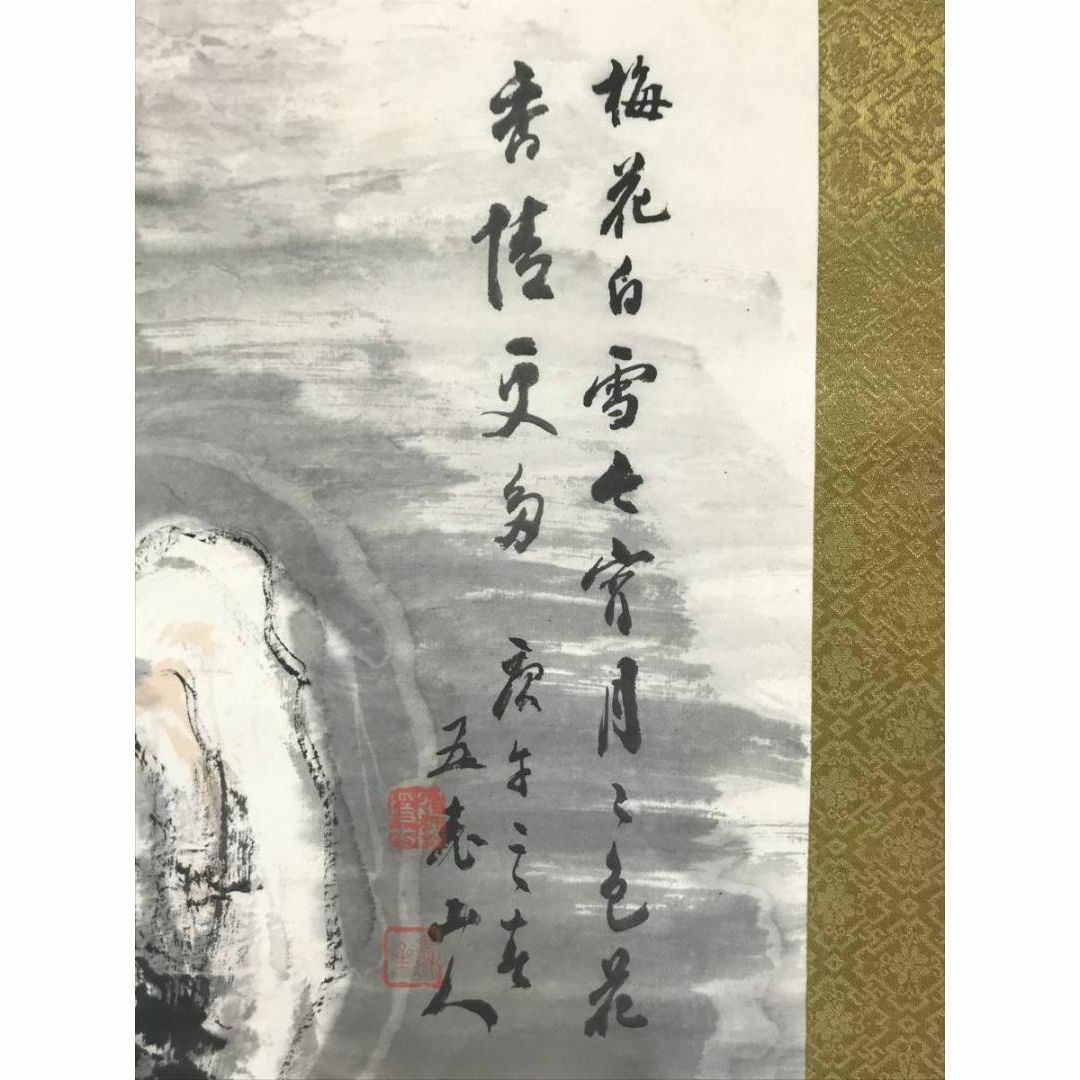 梅花白雪七宵月〻色花
香情更多 庚午之春
五 山人